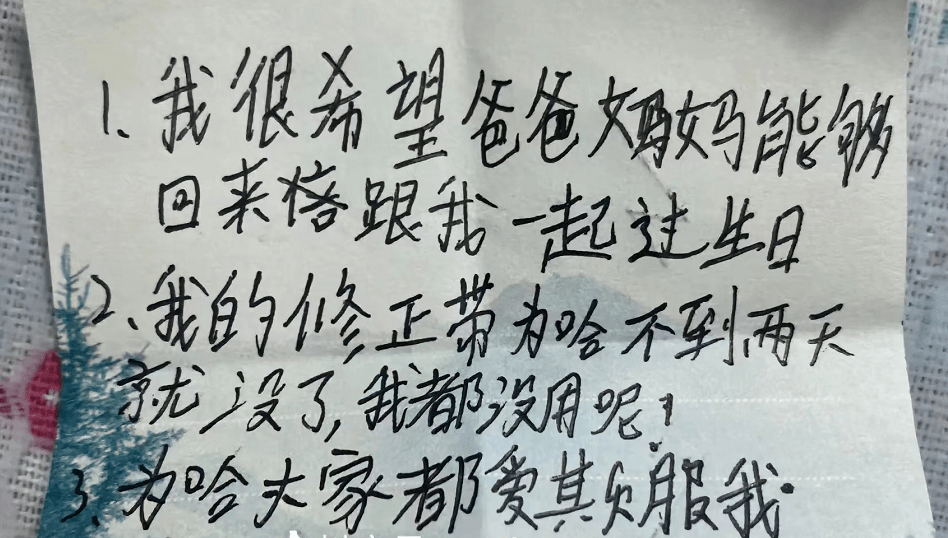 1、我很希望爸爸妈妈能够
回来 跟我一起过生日
2、我的修正带为哈不到两天
就没了,我都没用呢?
3、为哈大家都爱其负服我.